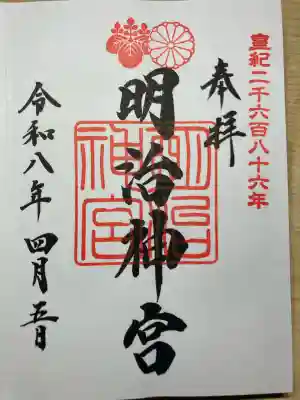 皇紀二千六百八十六年
奉拝
明治神宮
明治神宮
令和八年 四月五日